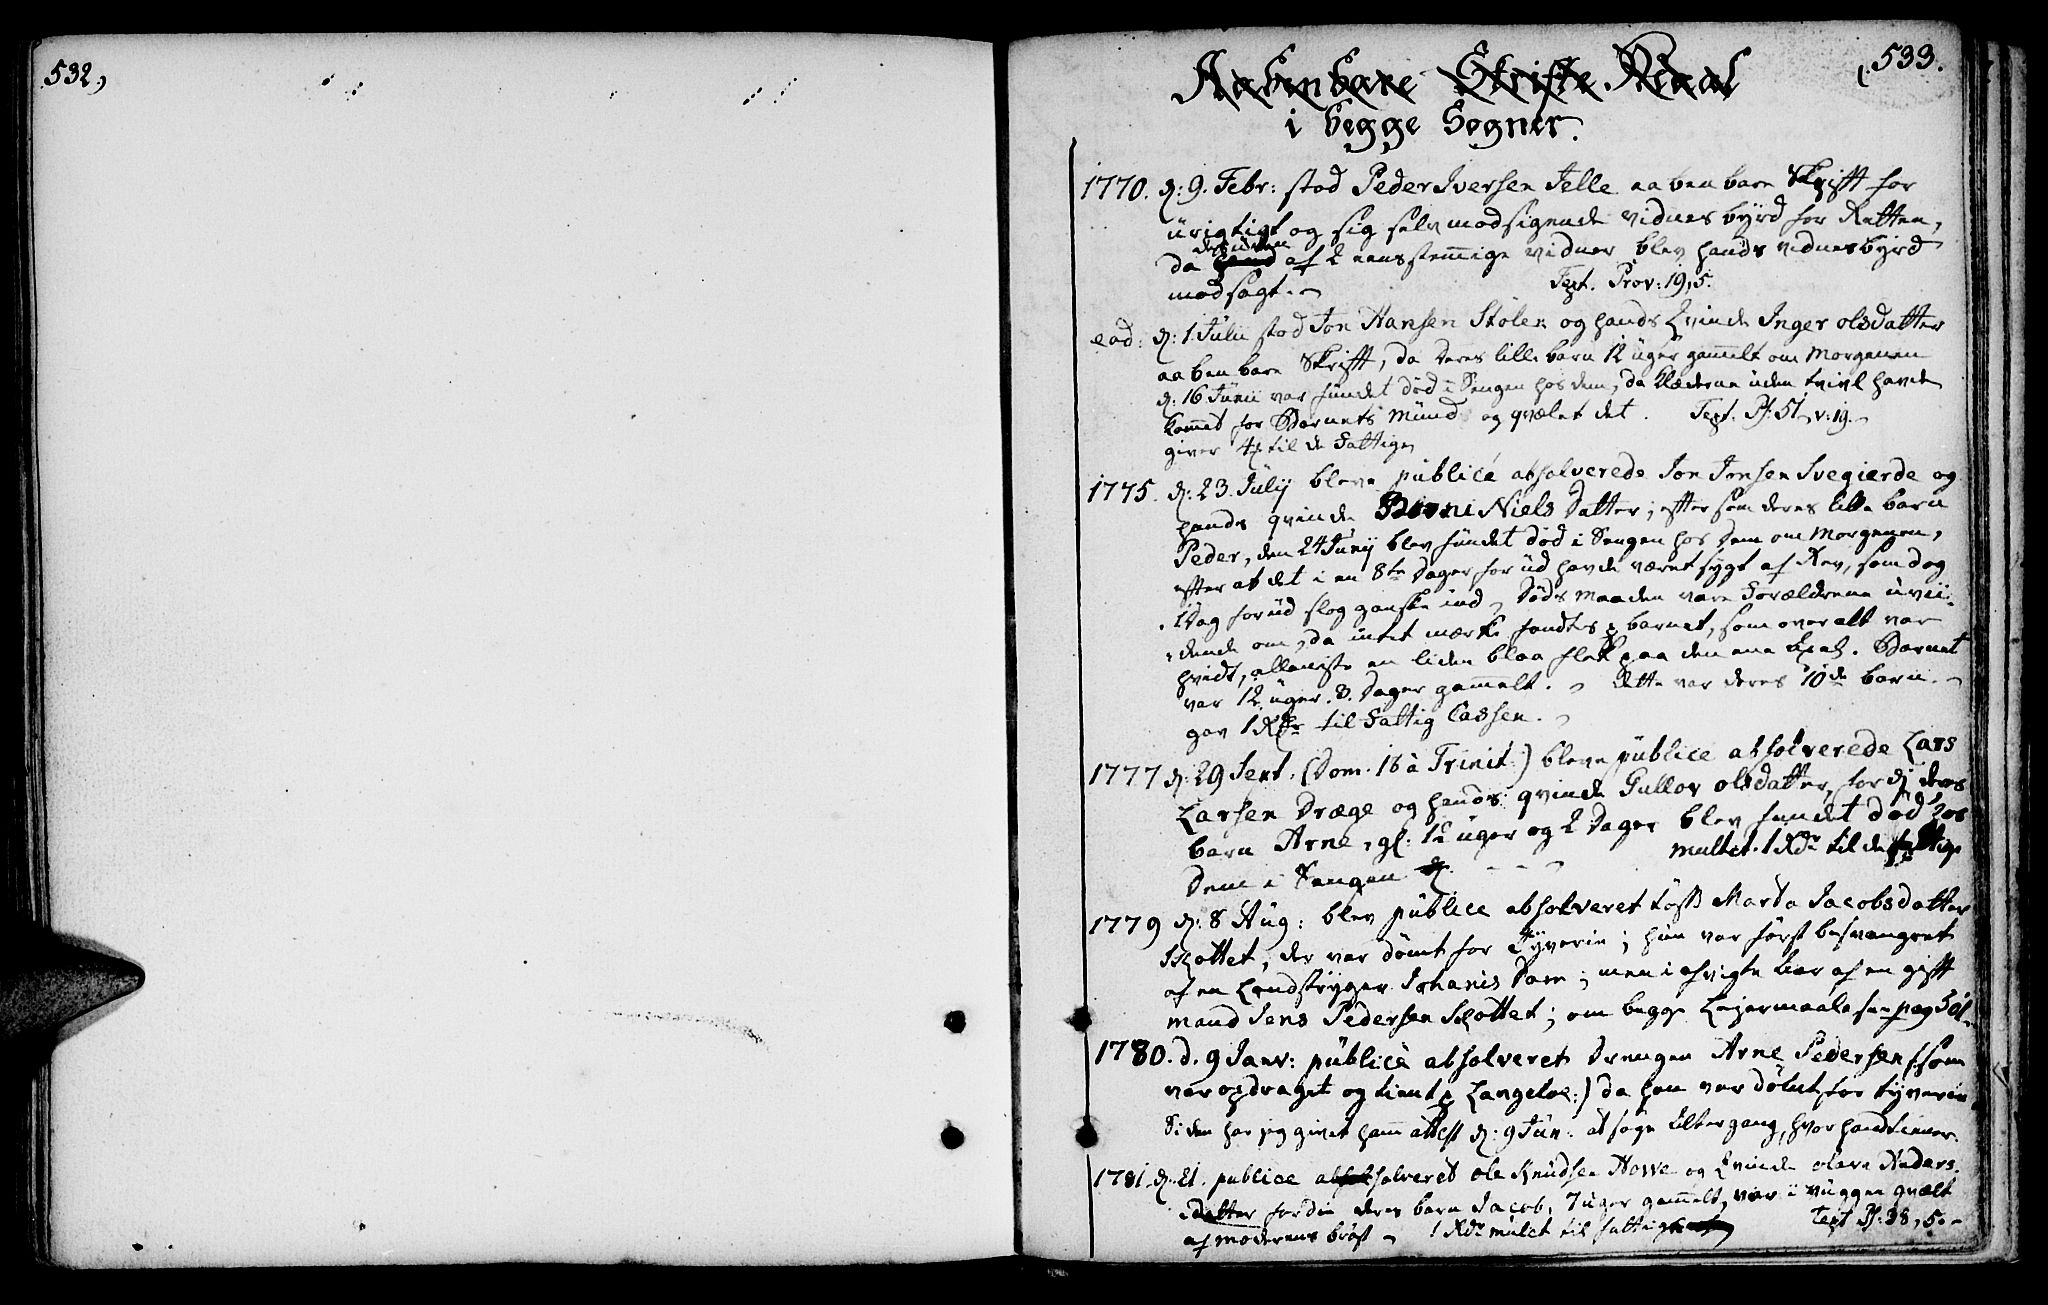 532,
533.
Aabenbare Skrifte-Maal
i begge Sogner.
1770. d: 9. Febr: stod Peder Iversen Telle aabenbare Skrifft for
urigtigt og sig selv modsigende vidnesbyrd for Retten,
desuden
da af 2 eensstemige vidner blev hands vidnesbyrd
modsagt. Text. Prov: 19,5.
eod: d: 1 Julii stod Jon Hansen Stolen og hands Qvinde Inger olsdatter
aabenbare Skrifft, da deres lille barn 12 uger gamelt om Morgenen
d: 16 Junii var fundet død i Sengen hos dem, da Klæderne uden tvivl havde
kommet for Barnets Mund og qvælet det. Text. Ps: 51 v: 19.
giver 4 til de Fattige
1775. d: 23. July bleve publicé absolverede Jon Jonsen Svegierde og
hands qvinde Niels Datter; efter som deres lille barn
Peder, den 24 Junij blev fundet død i Sengen hos dem om Morgenen,
efter at det i en 8te Dager forud havde været sygt af, som dog
1 Dag forud slog ganske ind, Døds maaden vare Forældrene uvii-
dende om, da intet mærke fandtes p barnet, som over alt var
hvidt, alleniste en liden blaa flek paa den ene. Barnet
var 12 uger 3 Dager gamelt. dette var deres 10de barn.
gav 1 Rdr til Fattig Cassen.
1777 d: 29 Sept. (Dom. 18 à Trinit:) bleve publice absolverede Lars
Larsen Dræge og hands qvinde Gullov olsdatter, fordj deres
barn Arne, gl: 12 uger og 2 Dager blev fundet død hos
Dem i Sengen mulct. 1 Rdr til de fattige
1779 d: 8 Aug: blev publice absolveret Løsk Marta Jacobsdatter
Skottet, der var dømt for Tyverie; hun var først besvangret
af en Landstryger Johanis; men i afvigte aar af en gift
mand Jens Pedersen Skottet; om begge Leyermaale see pag 501
1780. d. 9 Janv: publice absolveret Drengen Arne Pedersen (: som
var opdraget og tient p Langeloe:) da han var dømt for tyverie
Siden har jeg givet ham attest d: 9 Jun: at søge, hvor hand tiener.
1781. d: 21. publice absolveret ole Knudsen Howe og Qvinde olava Anders-
datter fordi deres barn Jacob, 7 uger gamelt, var i vuggen qvælt
af moderens bröst 1 Rdr mulct til fattig Text Ps: 38, 5.